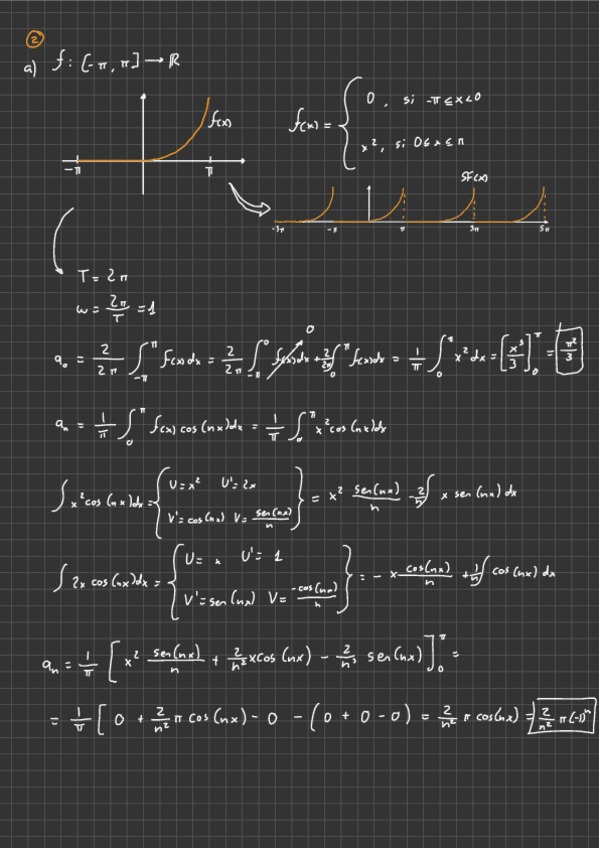 2
a) f: [-π, π] → ℝ
f(x) = { 0, si -π ≤ x < 0
x², si 0 ≤ x ≤ π
f(x)
-π π
SF(x)
-3π -π π 3π 5π
T = 2π
ω = 2π/T = 1
a₀ = 2/2π ∫_{-π}^{π} f(x)dx = 2/2π ∫_{-π}^{0} f(x)dx + 2/2π ∫_{0}^{π} f(x)dx = 1/π ∫_{0}^{π} x² dx = [x³/3]_{0}^{π} = π²/3
0
aₙ = 1/π ∫_{0}^{π} f(x) cos(nx)dx = 1/π ∫_{0}^{π} x² cos(nx)dx
∫ x² cos(nx)dx = { U = x² U' = 2x
V' = cos(nx) V = sen(nx)/n } = x² sen(nx)/n - 2/n ∫ x sen(nx) dx
∫ 2x cos(nx)dx = { U = x U' = 1
V' = sen(nx) V = -cos(nx)/n } = - x cos(nx)/n + 1/n ∫ cos(nx) dx
aₙ = 1/π [ x² sen(nx)/n + 2/n² x cos(nx) - 2/n³ sen(nx) ]_{0}^{π} =
= 1/π [ 0 + 2/n² π cos(nx) - 0 - (0 + 0 - 0) = 2/n² π cos(nx) = 2/n² π (-1)ⁿ